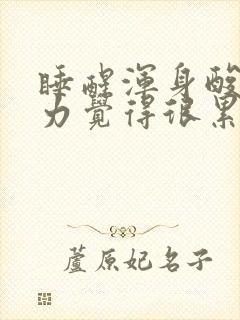 睡醒渾身酸
力覺得很累
蘆原妃名子